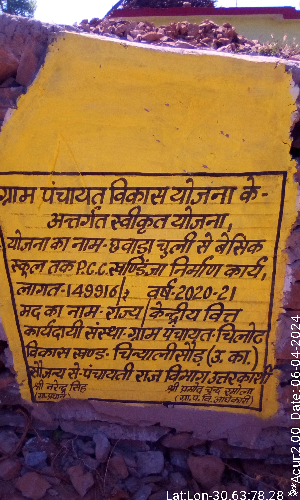 ग्राम पंचायत विकास योजना के-
अन्तर्गत स्वीकृत योजना,
योजना का नाम-छवाड़ा चुली से बेसिक
स्कूल तक P.C.C. खण्डिंजा निर्माण कार्य,
लागत-149916/; वर्ष-2020-21
मद का नाम-राज्य/केन्द्रीय वित्त
कार्यदायी संस्था-ग्राम पंचायत-चिलोट
विकास खण्ड-चिन्यालीसौड़ (उ.का.)
सौजन्य से-पंचायती राज विभाग उत्तरकाशी
श्री नरेन्द्र सिंह
श्री चन्द रमोला
(ग्रा.प.वि. अधिकारी)
LatLon-30.63:78.28
**Acur2.00 Date:06-04-2024